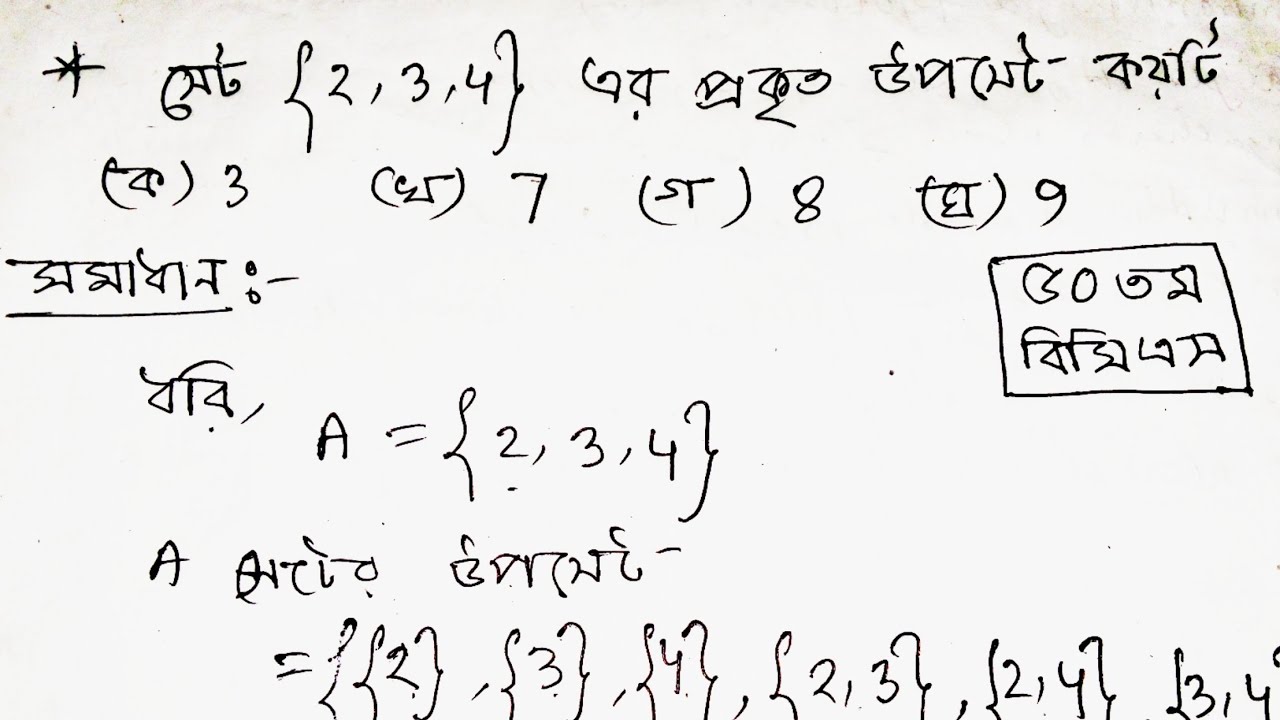 * সেট {2, 3, 4} এর প্রকৃত উপসেট কয়টি
(ক) 3 (খ) 7 (গ) 8 (ঘ) 9
সমাধান :-
৫০তম
বিসিএস
ধরি,
A = {2, 3, 4}
A সেটের উপসেট
= {{2}, {3}, {4}, {2, 3}, {2, 4} {3, 4